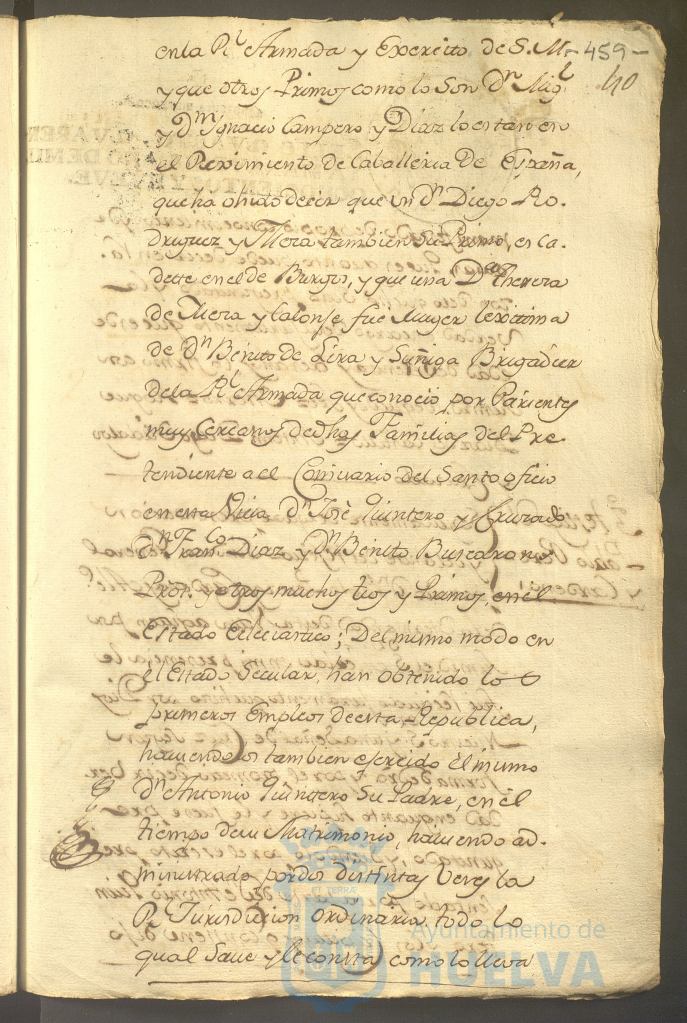 en la Rl. Armada y Exercito de S. M. - 459 -
y que otros Primos como lo son Dn. Migl. 40
y Dn. Ygnacio Campero y Diaz lo estan en
el Reximiento de Caballeria de España,
que ha ohido decir que un Dn. Diego Ro-
driguez y Mora tambien su Primo, es ca-
dette en el de Burgos, y que una Da. Theresa
de Mera y Calonje fue Muger lexitima
de Dn. Benito de Lira y Suñiga Brigadier
de la Rl. Armada que conocio por Parientes
muy cercanos de dhas Familias del Pre-
tendiente a el Comisario del Santo oficio
en esta Villa Dn. Josè Quintero y Hurtado
Dn. Franco. Diaz y Dn. Benito Buscarons
y otros muchos tios y Primos, en el
Estado Eclesiastico; Del mismo modo en
el Estado Secular, han obtenido los
primeros Empleos de esta Republica,
haviendolos tambien ejercido el mismo
Dn. Antonio Quintero su Padre, en el
tiempo de su Matrimonio, haviendo ad-
ministrado por dos distintas veces la
Rl. Jurisdiccion ordinaria, todo lo
qual save y le consta como lo lleva
Ayuntamiento de
HUELVA